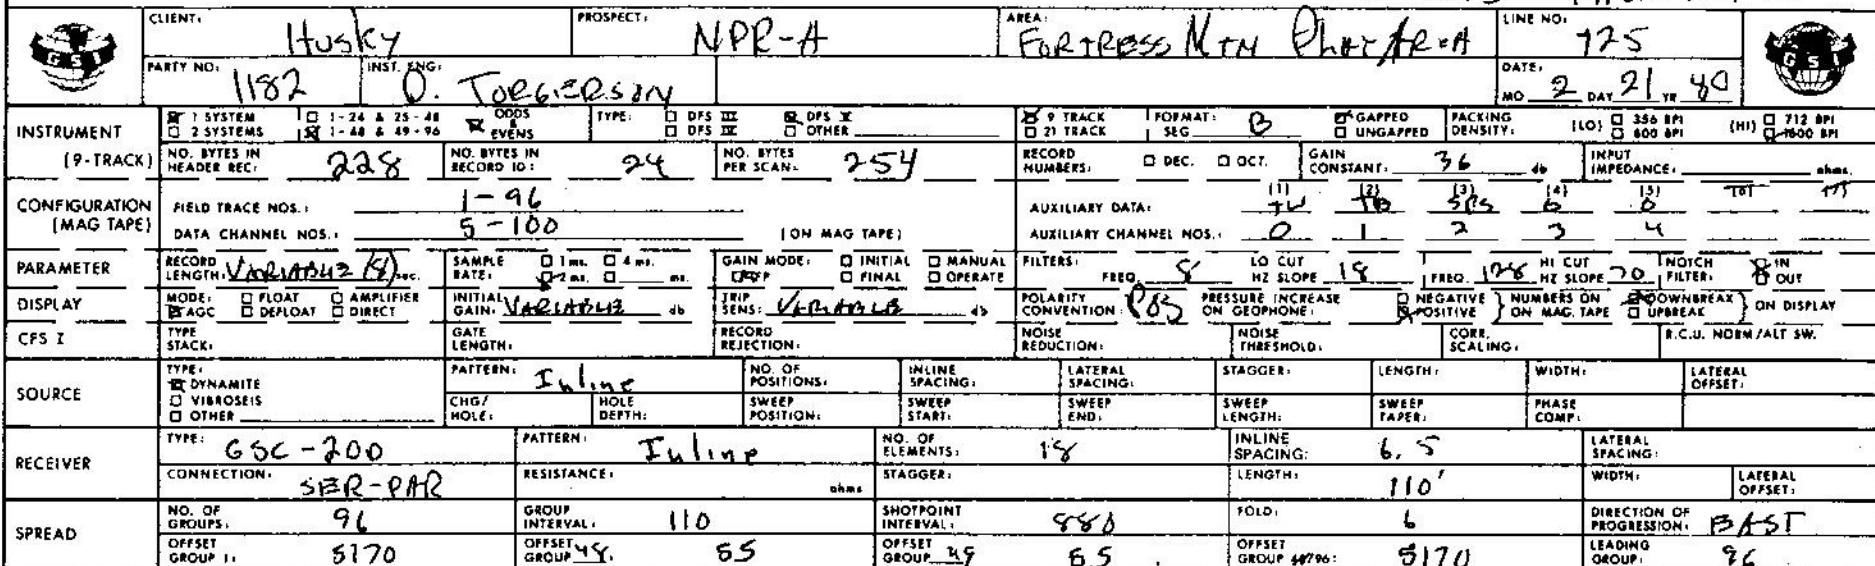 CLIENT: Husky PROSPECT: NPR-A AREA: FORTRESS MTN LINE NO: 725
GSI GSI
PARTY NO: 1182 INST. ENG: O. TORGERSON DATE: MO 2 DAY 21 YR 80
INSTRUMENT 1 SYSTEM 1-24 & 25-48 ODDS & EVENS TYPE: DFS III DFS V 9 TRACK FORMAT: SEG B GAPPED PACKING DENSITY: (LO) 356 BPI (HI) 712 BPI
2 SYSTEMS 1-48 & 49-96 DFS IV OTHER 21 TRACK UNGAPPED 800 BPI 1600 BPI
(9-TRACK) NO. BYTES IN HEADER REC: 228 NO. BYTES IN RECORD ID: 24 NO. BYTES PER SCAN: 254 RECORD NUMBERS: DEC. OCT. GAIN CONSTANT: 36 db INPUT IMPEDANCE: ohms
CONFIGURATION (MAG TAPE) FIELD TRACE NOS.: 1-96 AUXILIARY DATA: (1) TW (2) TB (3) (4) 0 (5) 0 (6) (7)
DATA CHANNEL NOS.: 5-100 (ON MAG TAPE) AUXILIARY CHANNEL NOS.: 0 1 2 3 4
PARAMETER RECORD LENGTH: VARIABLE sec. SAMPLE RATE: 1 ms. 4 ms. 2 ms. ms. GAIN MODE: INITIAL MANUAL IFP FINAL OPERATE FILTERS: FREQ 8 LO CUT HZ SLOPE 18 FREQ. 128 HI CUT HZ SLOPE 70 NOTCH FILTER: IN OUT
DISPLAY MODE: FLOAT AMPLIFIER AGC DEFLOAT DIRECT INITIAL GAIN: VARIABLE db TRIP SENS: VARIABLE db POLARITY CONVENTION: POS PRESSURE INCREASE ON GEOPHONE: NEGATIVE POSITIVE NUMBERS ON ON MAG. TAPE DOWNBREAK UPBREAK ON DISPLAY
CFS I TYPE STACK: GATE LENGTH: RECORD REJECTION: NOISE REDUCTION: NOISE THRESHOLD: CORR. SCALING: R.C.U. NORM/ALT SW.
SOURCE TYPE: DYNAMITE VIBROSEIS OTHER PATTERN: Inline NO. OF POSITIONS: INLINE SPACING: LATERAL SPACING: STAGGER: LENGTH: WIDTH: LATERAL OFFSET:
CHG/HOLE: HOLE DEPTH: SWEEP POSITION: SWEEP START: SWEEP END: SWEEP LENGTH: SWEEP TAPER: PHASE COMP:
RECEIVER TYPE: GSC-200 PATTERN: Inline NO. OF ELEMENTS: 18 INLINE SPACING: 6.5 LATERAL SPACING:
CONNECTION: SER-PAR RESISTANCE: ohms STAGGER: LENGTH: 110' WIDTH: LATERAL OFFSET:
SPREAD NO. OF GROUPS: 96 GROUP INTERVAL: 110 SHOTPOINT INTERVAL: 880 FOLD: 6 DIRECTION OF PROGRESSION: EAST
OFFSET GROUP 1: 5170 OFFSET GROUP 48: 55 OFFSET GROUP 49 55 OFFSET GROUP 48/96: 5170 LEADING GROUP: 96